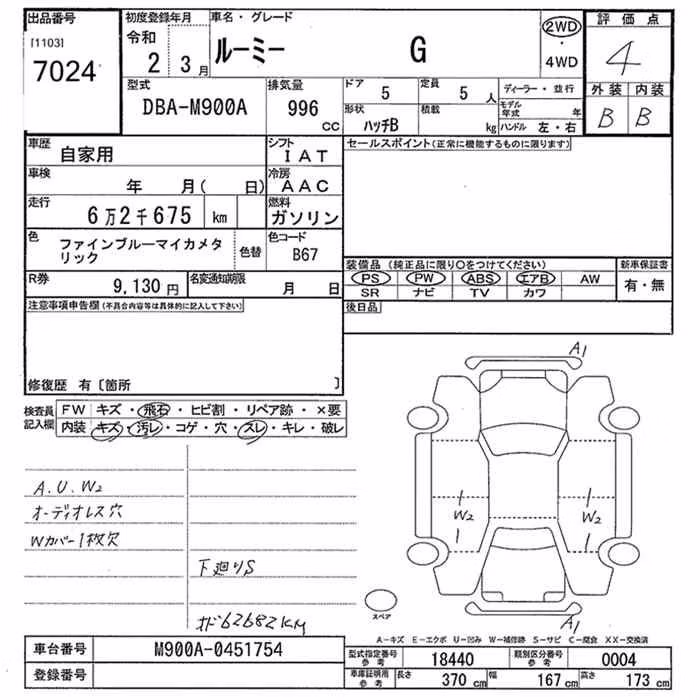 出品番号
[1103]
7024
初度登録年月
令和
2 3月
車名・グレード
ルーミー G
2WD
・
4WD
評価点
4
外装 内装
B B
型式
DBA-M900A
排気量
996
CC
ドア
5
定員
5 人
形状
ハッチB
積載
kg
ディーラー・並行
モデル年式 年
ハンドル 左・右
車歴
自家用
シフト
IAT
車検
年 月( 日)
冷房
AAC
走行
6万2千675 km
燃料
ガソリン
色
ファインブルーマイカメタ
リック
色替
色コード
B67
R券
9,130円
名変通知期限
月 日
セールスポイント(正常に機能するものに限ります)
装備品(純正品に限り〇をつけてください)
新車保証書
PS PW ABS エアB AW
有・無
SR ナビ TV カワ
後日品
注意事項申告欄(不具合内容等は具体的に記入して下さい)
修復歴 有〔箇所 〕
検査員
記入欄
FW キズ・飛石・ヒビ割・リペア跡・×要
内装 キズ・汚レ・コゲ・穴・スレ・キレ・破レ
A.U.W2
オーディオレス穴
Wカバー1枚欠
下廻りS
62682KM
A1
W2
W2
A1
スペア
A−キズ E−エクボ U−凹み W−補修跡 S−サビ C−腐食 XX−交換済
車台番号
M900A-0451754
登録番号
型式指定番号
参考
18440
類別区分番号
参考
0004
車庫証明用
参考
長さ
370 cm
幅
167 cm
高さ
173 cm